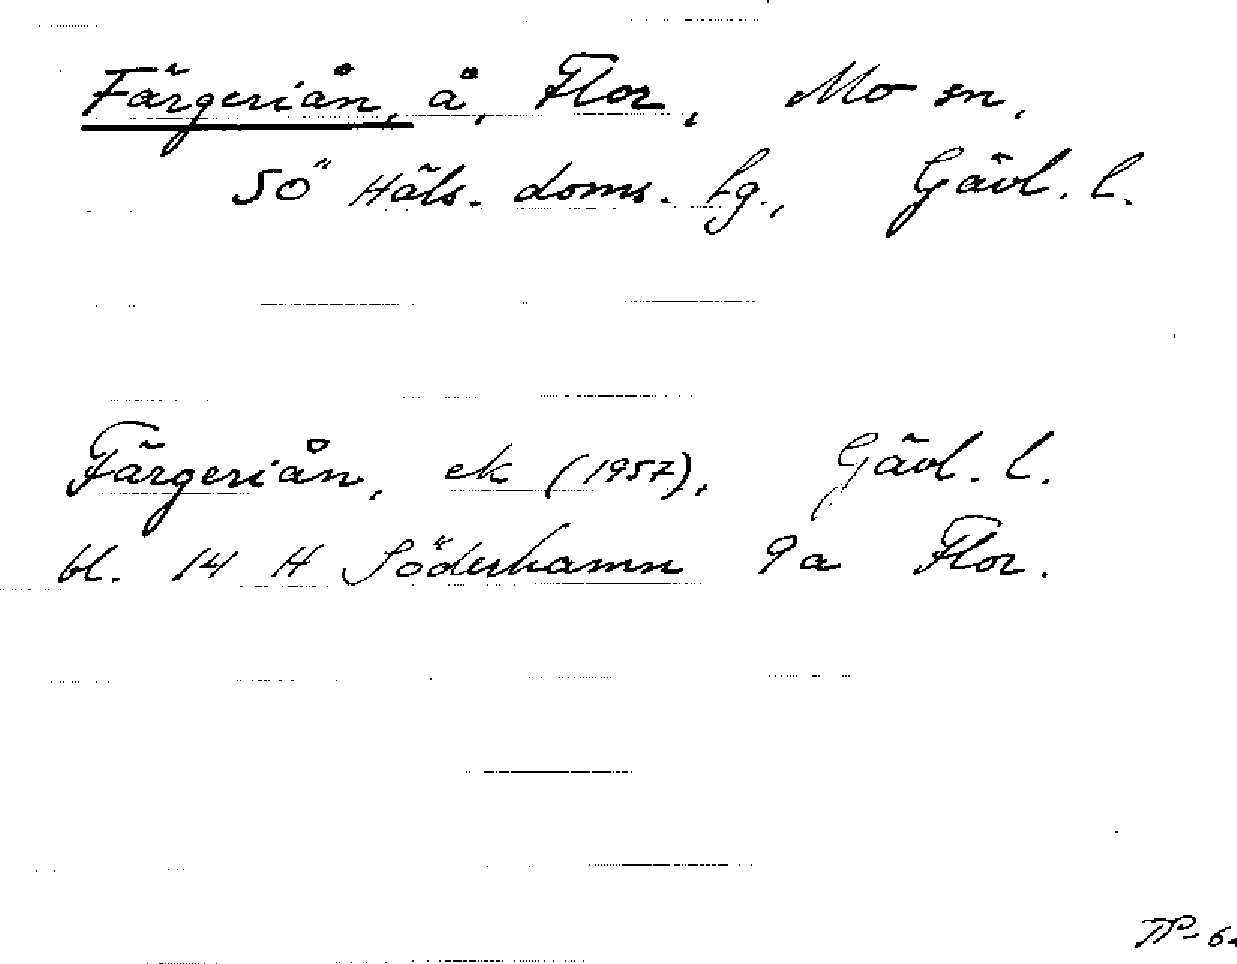 Färgeriån, å, Flor, Mo sn,
Sö Häls. doms. fg., Gävl. l.
Färgeriån, ek (1957), Gävl. l.
bl. 14 H Söderhamn 9 a Flor.